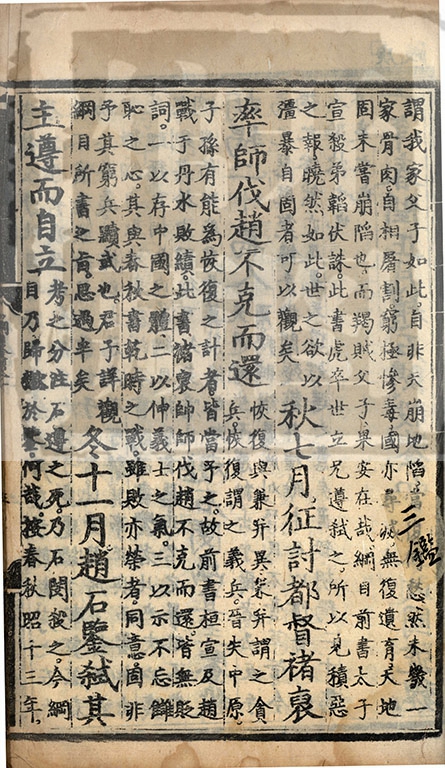 謂我家父子如此自非天崩地陷愁然未幾一
家骨肉自相屠割窮極慘毒國亦滅無復遺育天地
固未嘗崩陷也而羯賊父子果安在哉綱目前書太子
宣殺弟韜伏誅此書虎卒世立兄遵弒之所以見積惡
之報曉然如此世之欲以
彊暴自固者可以觀矣
秋七月征討都督褚裒
率師伐趙不克而還
恢復與兼并異兼并謂之貪
兵恢復謂之義兵晉失中原
子孫有能為恢復之計者皆當予之故前書桓宣及趙
戰于丹水敗績此書褚裒帥師伐趙不克而還皆無貶
詞一以存中國之體二以伸義士之氣三以示不忘讎
恥之心其與春秋書乾時之戰雖敗亦榮者同意固非
予其窮兵黷武也君子詳觀
綱目所書之旨思過半矣
冬十一月趙石鑒弒其
主遵而自立
考之分注石遵之死乃石閔殺之今綱
目乃歸獄於鑒何哉按春秋昭十三年
三鑑